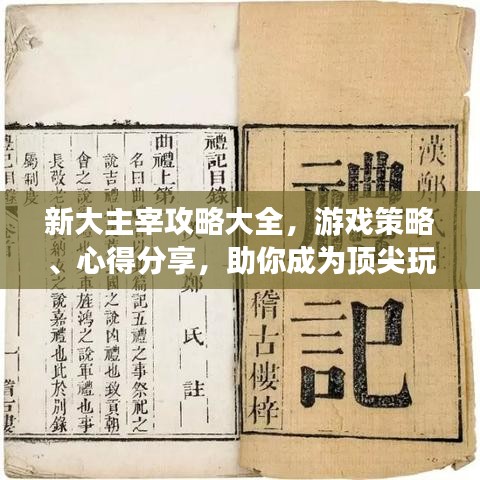 新大主宰攻略大全，游戏策略
、心得分享，助你成为顶尖玩
漢鄭
禮記
稽古樓梓
禮記目錄
曲禮上第
鄭氏註
名曰曲禮
五禮之事祭祀之
說吉禮也
凶禮也致貢朝
會之說
車旌鴻之說軍禮也事
長敬老
之說嘉禮也此於別錄
屬制度